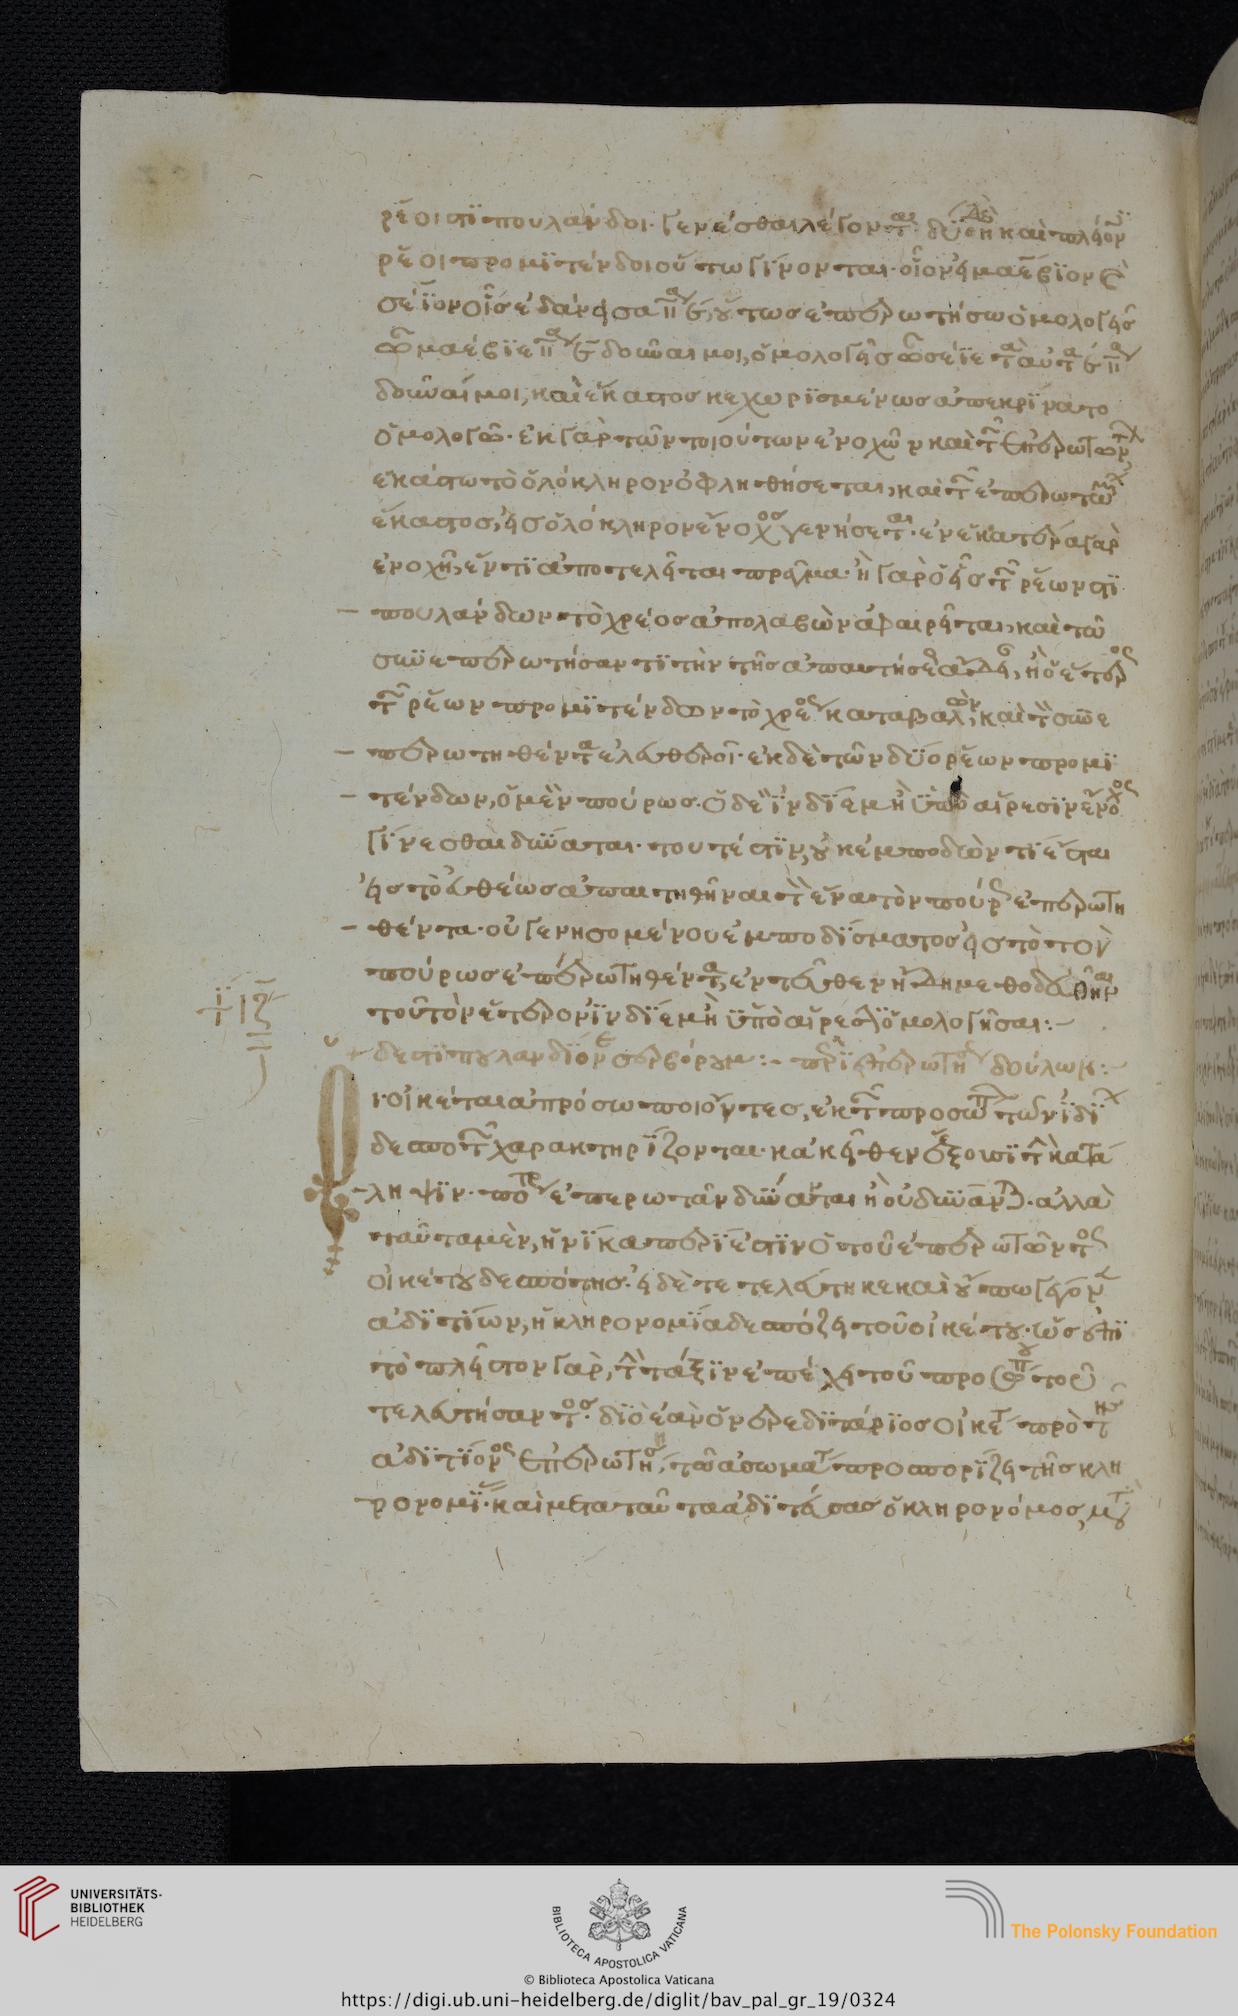 ρέοι στιπουλάνδοι. γενέσθαι λέγονται. δύο δὲ ἢ καὶ πλείον
ρέοι προμιτένδοι οὕτω γίνονται. οἷον εἰ μαέβιον
σέϊον εἰς ἐδάνεισα οὕτως ἐπερωτήσω ὁμολογεῖς
μαέβιε δοῦναι μοι, ὁμολογεῖς σέϊε τὰ αὐτὰ
δοῦναί μοι, καὶ ἕκαστος κεχωρισμένως ἀπεκρίνατο
ὁμολογῶ. ἐκ γὰρ τῶν τοιούτων ἐνοχῶν καὶ τῶν ἐπερωτών
ἑκάστω τὸ ὁλόκληρον ὀφληθήσεται, καὶ τῶν ἐπερωτωμ
ἕκαστος, εἰς ὁλόκληρον ἔνοχος γενήσεται. ἐν ἑκατέρα γὰρ
ἐνοχῆ, ἕν τι ἀποτελεῖται πρᾶγμα. ἢ γὰρ ὁ εἷς τῶν ρέων στι
πουλάνδων τὸ χρέος ἀπολαβὼν ἀφαιρεῖται, καὶ τῶ
συνεπερωτήσαντι τὴν τῆς ἀπαιτήσεως ἢ ὁ ἕτερος
τῶν ρέων προμιτένδων τὸ χρέος καταβαλὼν, καὶ τὸν συνε
περωτηθέντα ἐλευθεροῖ. ἐκ δὲ τῶν δύο ρέων προμι
τένδων, ὁ μὲν πούρως. ὁ δὲ ἰν δίεμ ἢ ὑπὸ αἵρεσιν ἔνοχος
γίνεσθαι δύναται. τουτέστιν, οὐκ ἐμποδὼν τι ἔσται
εἰς τὸ εὐθέως ἀπαιτηθῆναι τὸν ἕνα τὸν πούρως ἐπερωτη
θέντα. οὐ γενησομένου ἐμποδίσματος εἰς τὸ τὸν
πούρως ἐπερωτηθέντα, ἐντεῦθεν ἤδη μεθοδευθῆναι
τοῦ τὸν ἕτερον ἰν δίεμ ἢ ὑπὸ αἵρεσιν ὁμολογῆσαι:-
+ ιζ
δε στιπουλανδιόνε σερβόρουμ:- περὶ ἐπερωτήσεως δούλων:-
Οἱ οἰκέται ἀπρόσωποι ὄντες, ἐκ τῶν προσώπων τῶν ἰδίων
δεσποτῶν χαρακτηρίζονται. κἀκεῖθεν ἔξουσι τὴν κατά
ληψιν. πότε ἐπερωτᾶν δύναται ἢ οὐ δύνανται. ἀλλὰ
ταῦτα μὲν, ἡνίκα περίεστιν ὁ τοῦ ἐπερωτῶντος
οἰκέτου δεσπότης. εἰ δὲ τετελεύτηκε καὶ οὔπω γέγον
ἀδιτίων, ἡ κληρονομία δεσπόζει τοῦ οἰκέτου. ὡς ἐπὶ
τὸ πλεῖστον γὰρ, τὴν τάξιν ἐπέχει τοῦ προσώπου τοῦ
τελευτήσαντος. διὸ ἐὰν ὁ ερεδιτάριος οἰκέτης πρὸ τῆς
ἀδιτίονος ἐπερωτήση, τῶ ἀσωμάτω προσπορίζει τῆς κλη
ρονομίας. καὶ μετὰ ταῦτα ἀδιτεύσας ὁ κληρονόμος, μετ
UNIVERSITÄTS-
BIBLIOTHEK
HEIDELBERG
BIBLIOTECA APOSTOLICA VATICANA
The Polonsky Foundation
© Biblioteca Apostolica Vaticana
https://digi.ub.uni-heidelberg.de/diglit/bav_pal_gr_19/0324